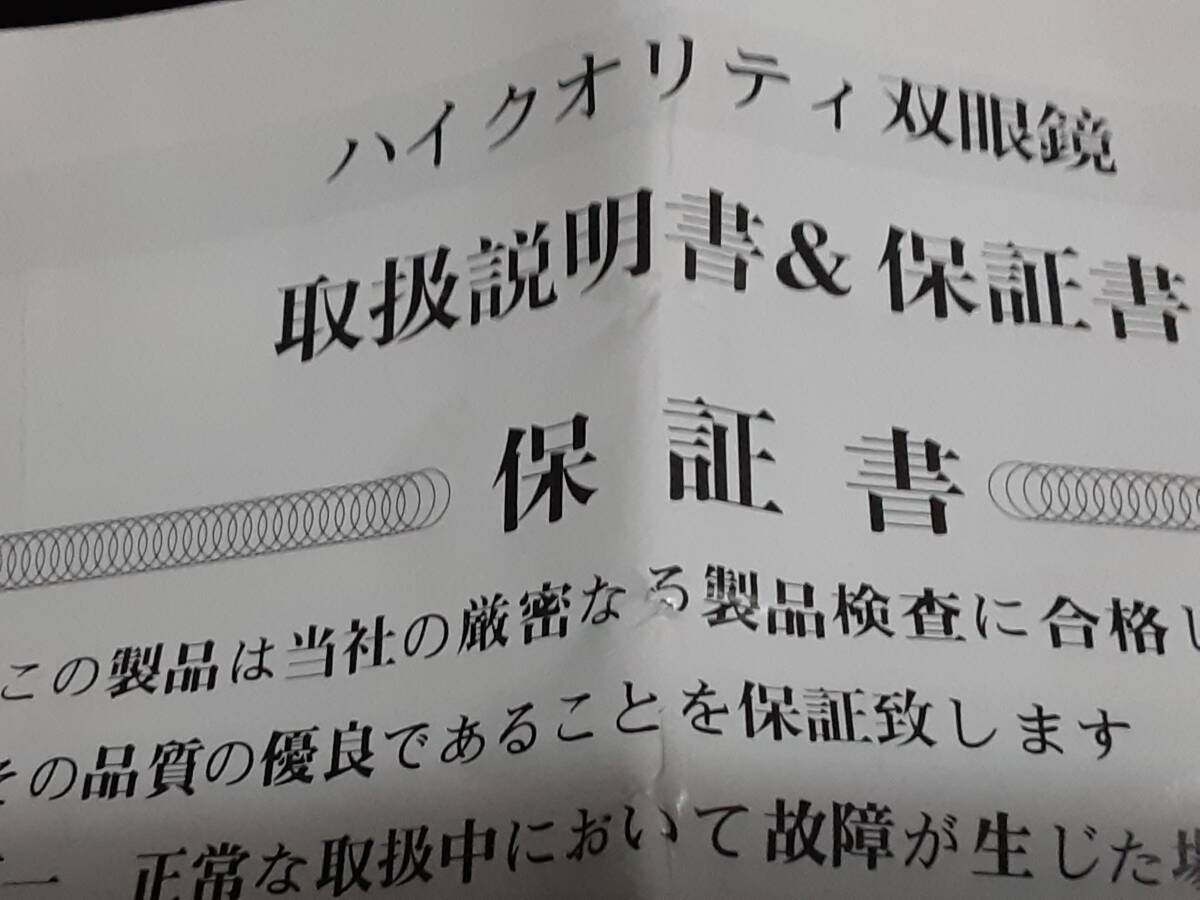 ハイクオリティ双眼鏡
取扱説明書&保証書
保証書
この製品は当社の厳密なる製品検査に合格し
その品質の優良であることを保証致します
一 正常な取扱中において故障が生じた場